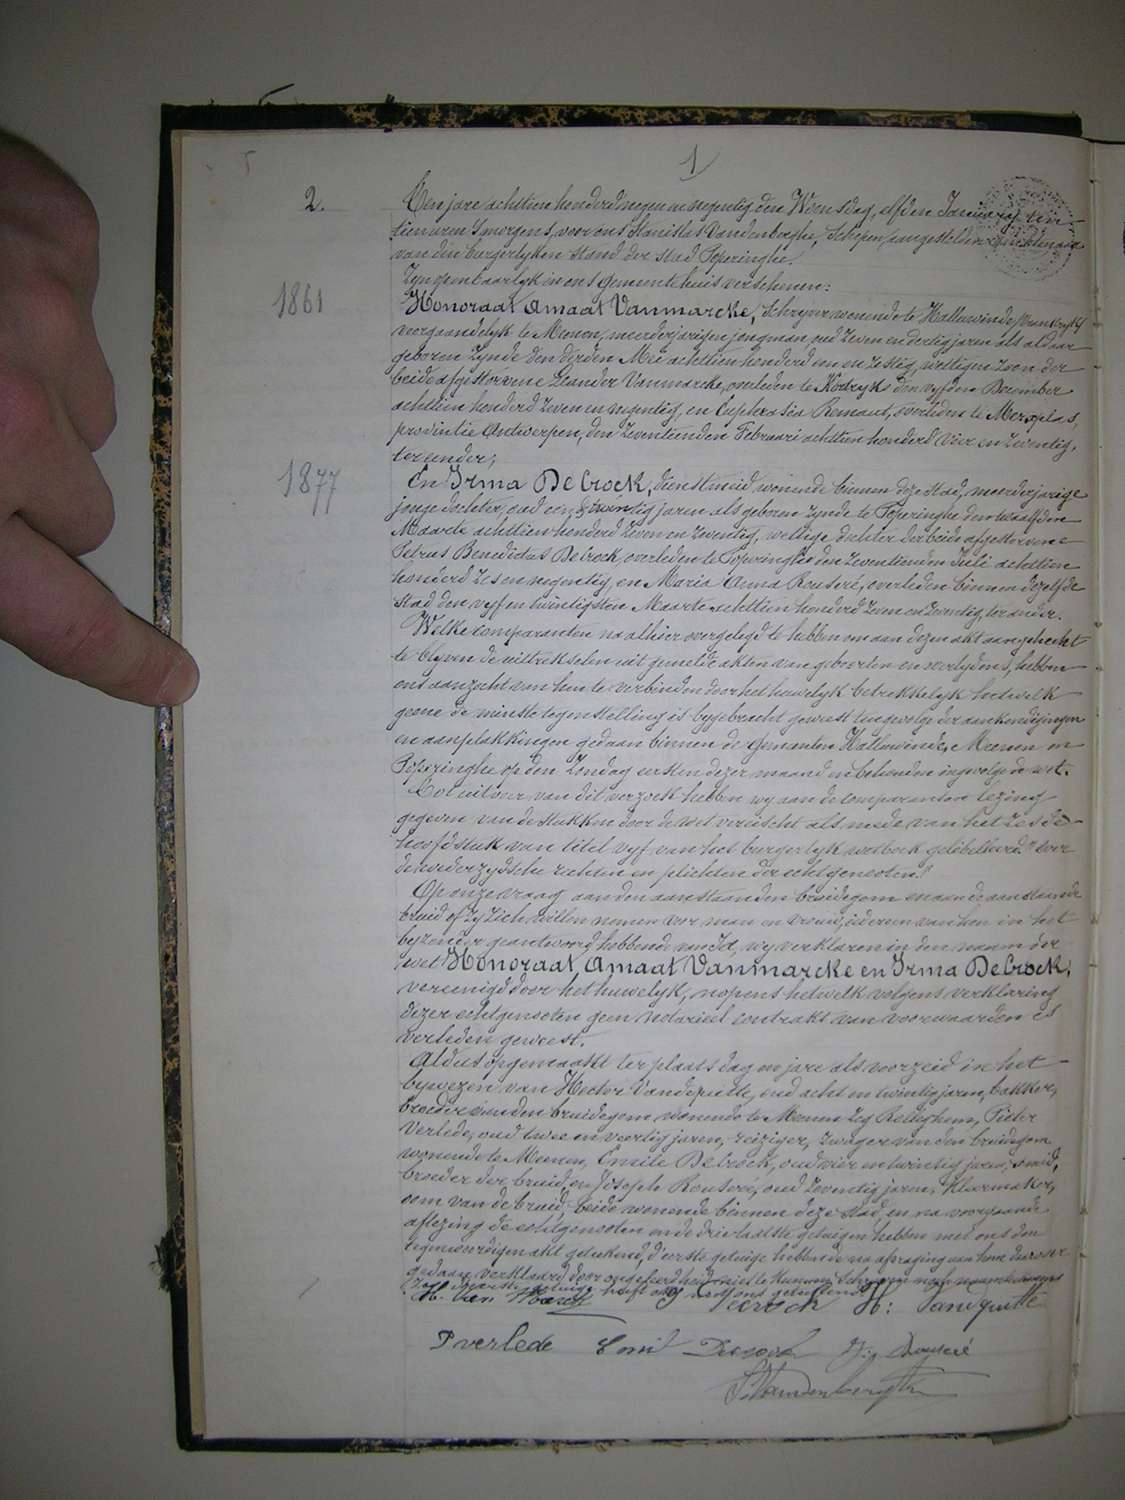 1
2.
Ten jare achttien honderd negen en negentig, den Woensdag, elfden Januarij, ten
tien uren 's morgens, voor ons Stanislas Vandenberghe, Schepen, aangestelden
van den burgerlyken stand der stad Poperinghe.
Zyn openbaarlyk in ons gemeentehuis verschenen:
1861
Honoraat Amaat Vanmarcke, Schryver wonende te Halluwin de (Frankryk)
voorgaandelyk te Meenen, meerderjarigen jongman, oud zeven en dertig jaren als aldaar
geboren zynde den derden Mei achttien honderd een en zestig, wettigen zoon der
beide afgestorvene Leander Vanmarcke, overleden te Kortryk den vyfden December
achttien honderd zeven en negentig, en Euphrasia Remaut, overleden te Merxplas,
provintie Antwerpen, den zeventienden Februari achttien honderd vier en zeventig,
ter eender;
1877
En Irma DeCrock, dienstmeid, wonende binnen deze stad, meerderjarige
jonge dochter, oud een en twintig jaren als geboren zynde te Poperinghe den twaalfden
Maarte achttien honderd zeven en zeventig, wettige dochter der beide afgestorvene
Petrus Benedictus Decrock, overleden te Poperinghe den zeventienden Juli achttien
honderd zes en negentig, en Maria Anna Rouseré, overleden binnen dezelfde
stad den vyf en twintigsten Maarte achttien honderd zeven en zeventig, ter ander.
Welke comparanten na alhier overgelegd te hebben om aan dezen akt aangehecht
te blyven de uittrekselen uit gemelde akten van geboorten en overlydens, hebben
ons aanzocht van hen te verbinden door het huwelyk betrekkelyk hetwelk
geene de minste tegenstelling is bygebracht geweest tengevolge der aankondigingen
en aanplakkingen gedaan binnen de gemeenten Halluwin de, Meenen en
Poperinghe op den Zondag eersten dezer maand en behouden ingevolge de wet.
Tot uitvoer van dit verzoek hebben wy aan de comparanten lezing
gegeven van de stukken door de wet vereischt als mede van het zesde
hoofdstuk van titel vyf van het burgerlyk wetboek gelibelleerd "over
de wederzydsche rechten en plichten der echtgenooten."
Op onze vraag aan den aanstaanden bruidegom en aan de aanstaande
bruid of zy zich willen nemen voor man en vrouw, iedereen van hen in het
byzonder geantwoord hebbende van Ja, wy verklaren in den naam der
wet Honoraat, Amaat Vanmarcke en Irma DeCrock,
vereenigd door het huwelyk, nopens hetwelk volgens verklaring
dezer echtgenooten geen notarieel contrakt van voorwaarden is
verleden geweest.
Aldus opgemaakt ter plaats dag en jare als voorzeid in het
bywezen van Hector Vandeputte, oud acht en twintig jaren, bakker,
broeder van den bruidegom wonende te Meenen, Pieter
Verlede, oud twee en veertig jaren, reiziger, zwager van den bruidegom
wonende te Meenen, Emile Decrock, oud vier en twintig jaren, smid,
broeder der bruid, en Joseph Rouseré, oud zeventig jaren, kleermaker,
oom van de bruid, beide wonende binnen deze stad, en na voorgaande
aflezing de echtgenooten en de drie laatste getuigen hebben met ons den
tegenwoordigen akt geteekend, d'eerste getuige hebbende na afvraging aan hem daarover
gedaan verklaard door ongeleerdheid niet te kunnen schryven noch naamteekenen
H. Van Marcke I Decrock H: Vandeputte
P verlede Emil Decrock Jos Rouseré
S. Vandenberghe